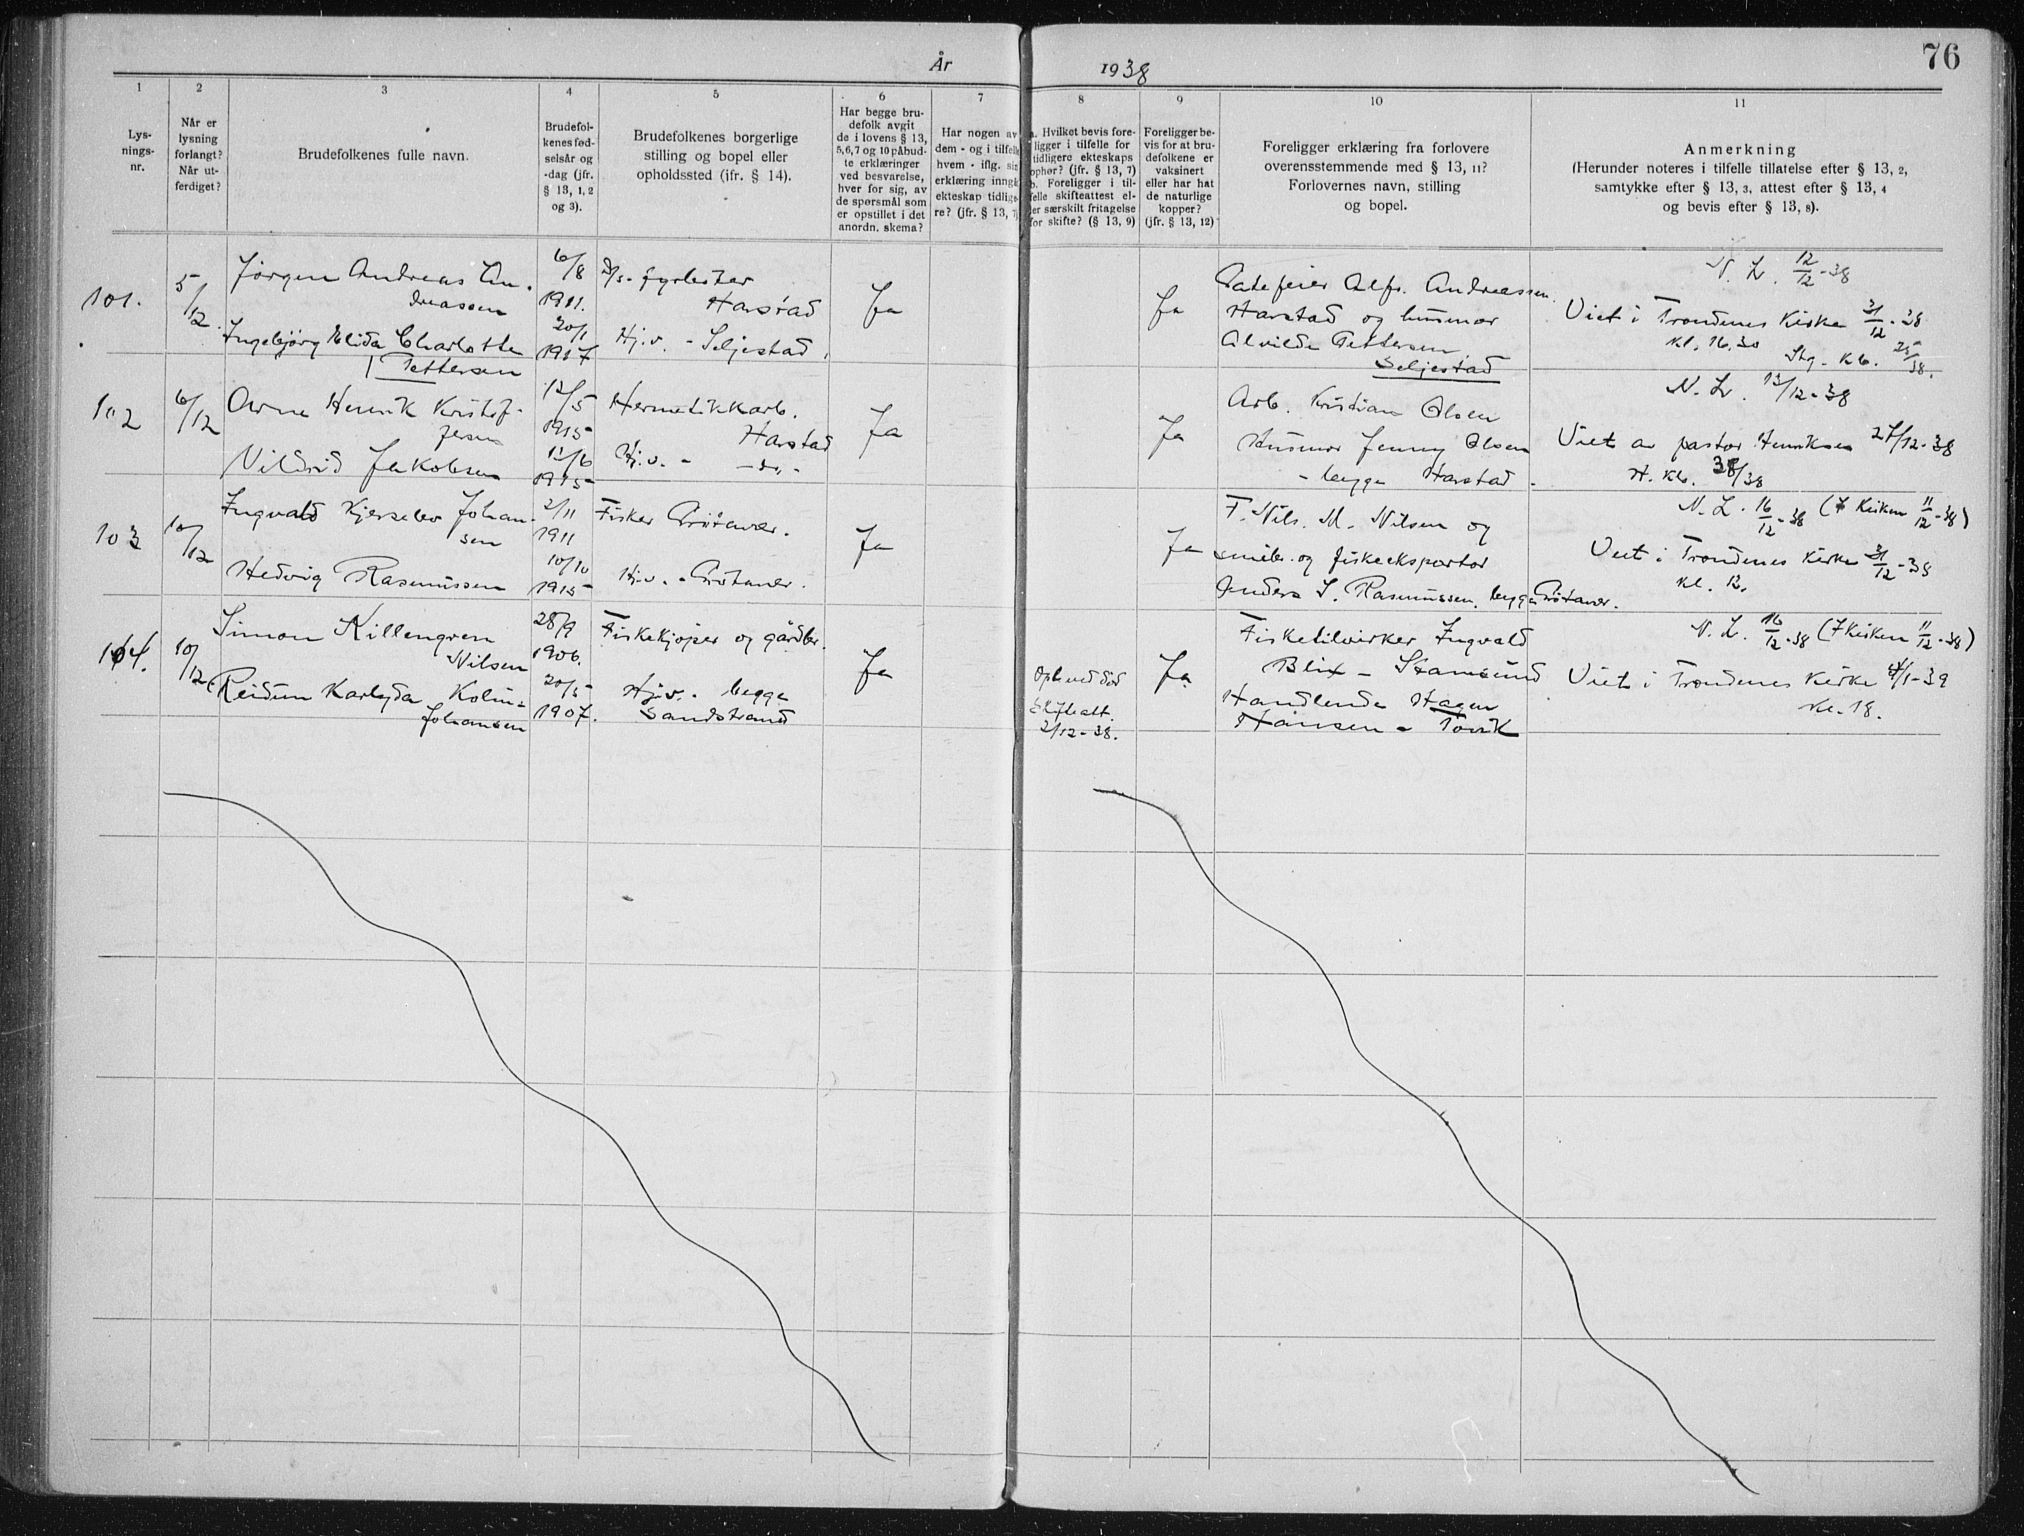 76
År 1938
1
2
3
4
5
6
7
8
9
10
11
Lys-
nings-
nr.
Når er
lysning
forlangt?
Når ut-
ferdiget?
Brudefolkenes fulle navn.
Brudefol-
kenes fød-
selsår og
-dag (jfr.
§ 13, 1, 2
og 3).
Brudefolkenes borgerlige
stilling og bopel eller
opholdssted (jfr. § 14).
Har begge bru-
defolk avgit
de i lovens § 13,
5, 6, 7 og 10 påbud-
te erklæringer
ved besvarelse,
hver for sig, av
de spørsmål som
er opstillet i det
anordn. skema?
Har nogen av
dem - og i tilfelle
hvem - iflg. sin
erklæring inngå
ekteskap tidlige-
re? (jfr. § 13, 7)
a. Hvilket bevis fore-
ligger i tilfelle for
tidligere ekteskaps
ophør? (jfr. § 13, 7)
b. Foreligger i til-
felle skifteattest el-
ler særskilt fritagelse
for skifte? (§ 13, 9)
Foreligger be-
vis for at bru-
defolkene er
vaksinert
eller har hat
de naturlige
kopper?
(jfr. § 13, 12)
Foreligger erklæring fra forlovere
overensstemmende med § 13, 11?
Forlovernes navn, stilling
og bopel.
Anmerkning
(Herunder noteres i tilfelle tillatelse efter § 13, 2,
samtykke efter § 13, 3, attest efter § 13, 4
og bevis efter § 13, 8).
101.
5/12.
Jørgen Andreas An-
dreassen
Ingebjørg Elida Charlotte
Pettersen
6/8
1911.
20/1
1917
D/s. fyrbøter
Harstad
Hj.v. - Seljestad.
Ja
Ja
Gatefeier Alfr. Andreassen.
Harstad og husmor
Alvilde Pettersen
Seljestad
N. L. 12/12-38
Viet i Trondenes Kirke 31/12-38
kl. 16.30
Stg. Kb. 25/38.
102
6/12
Arne Henrik Kristof-
fersen
Vildrid Jakobsen
12/5
1915
12/6
1915
Hermetikkarb.
Harstad
Hj.v. - -do.-
Ja
Ja
Arb. Kristian Olsen
Husmor Jenny Olsen
- begge Harstad.
N. L. 13/12-38
Viet av pastor Henriksen 27/12-38
H. Kb. 38/38
103
10/12
Ingvald Kjerselv Johan-
sen
Hedvig Rasmussen
2/11
1911
10/10
1915
Fisker Grøtavær.
Hj.v. - Grøtavær.
Ja
Ja
F. Nils. M. Nilsen og
småbr. og fiskeeksportør
Anders S. Rasmussen, begge Grøtavær.
N. L. 16/12-38 (I Kirken 11/12-38)
Viet i Trondenes Kirke 31/12-38
kl. 12.
104.
10/12.
Simon Killengren
Nilsen
Reidun Karlyda Kolin-
Johansen
28/9
1906.
20/5
1907.
Fiskekjøper og gårdbr.
Hj.v. - begge
Sandstrand
Ja
Oph. ved død
Skifteatt.
2/12-38.
Ja.
Fisketilvirker Ingvald
Blix - Stamsund
Handlende Hagen
Hansen - Tovik
N. L. 16/12-38 (I Kirken 11/12-38)
Viet i Trondenes Kirke 4/1-39
kl. 18.